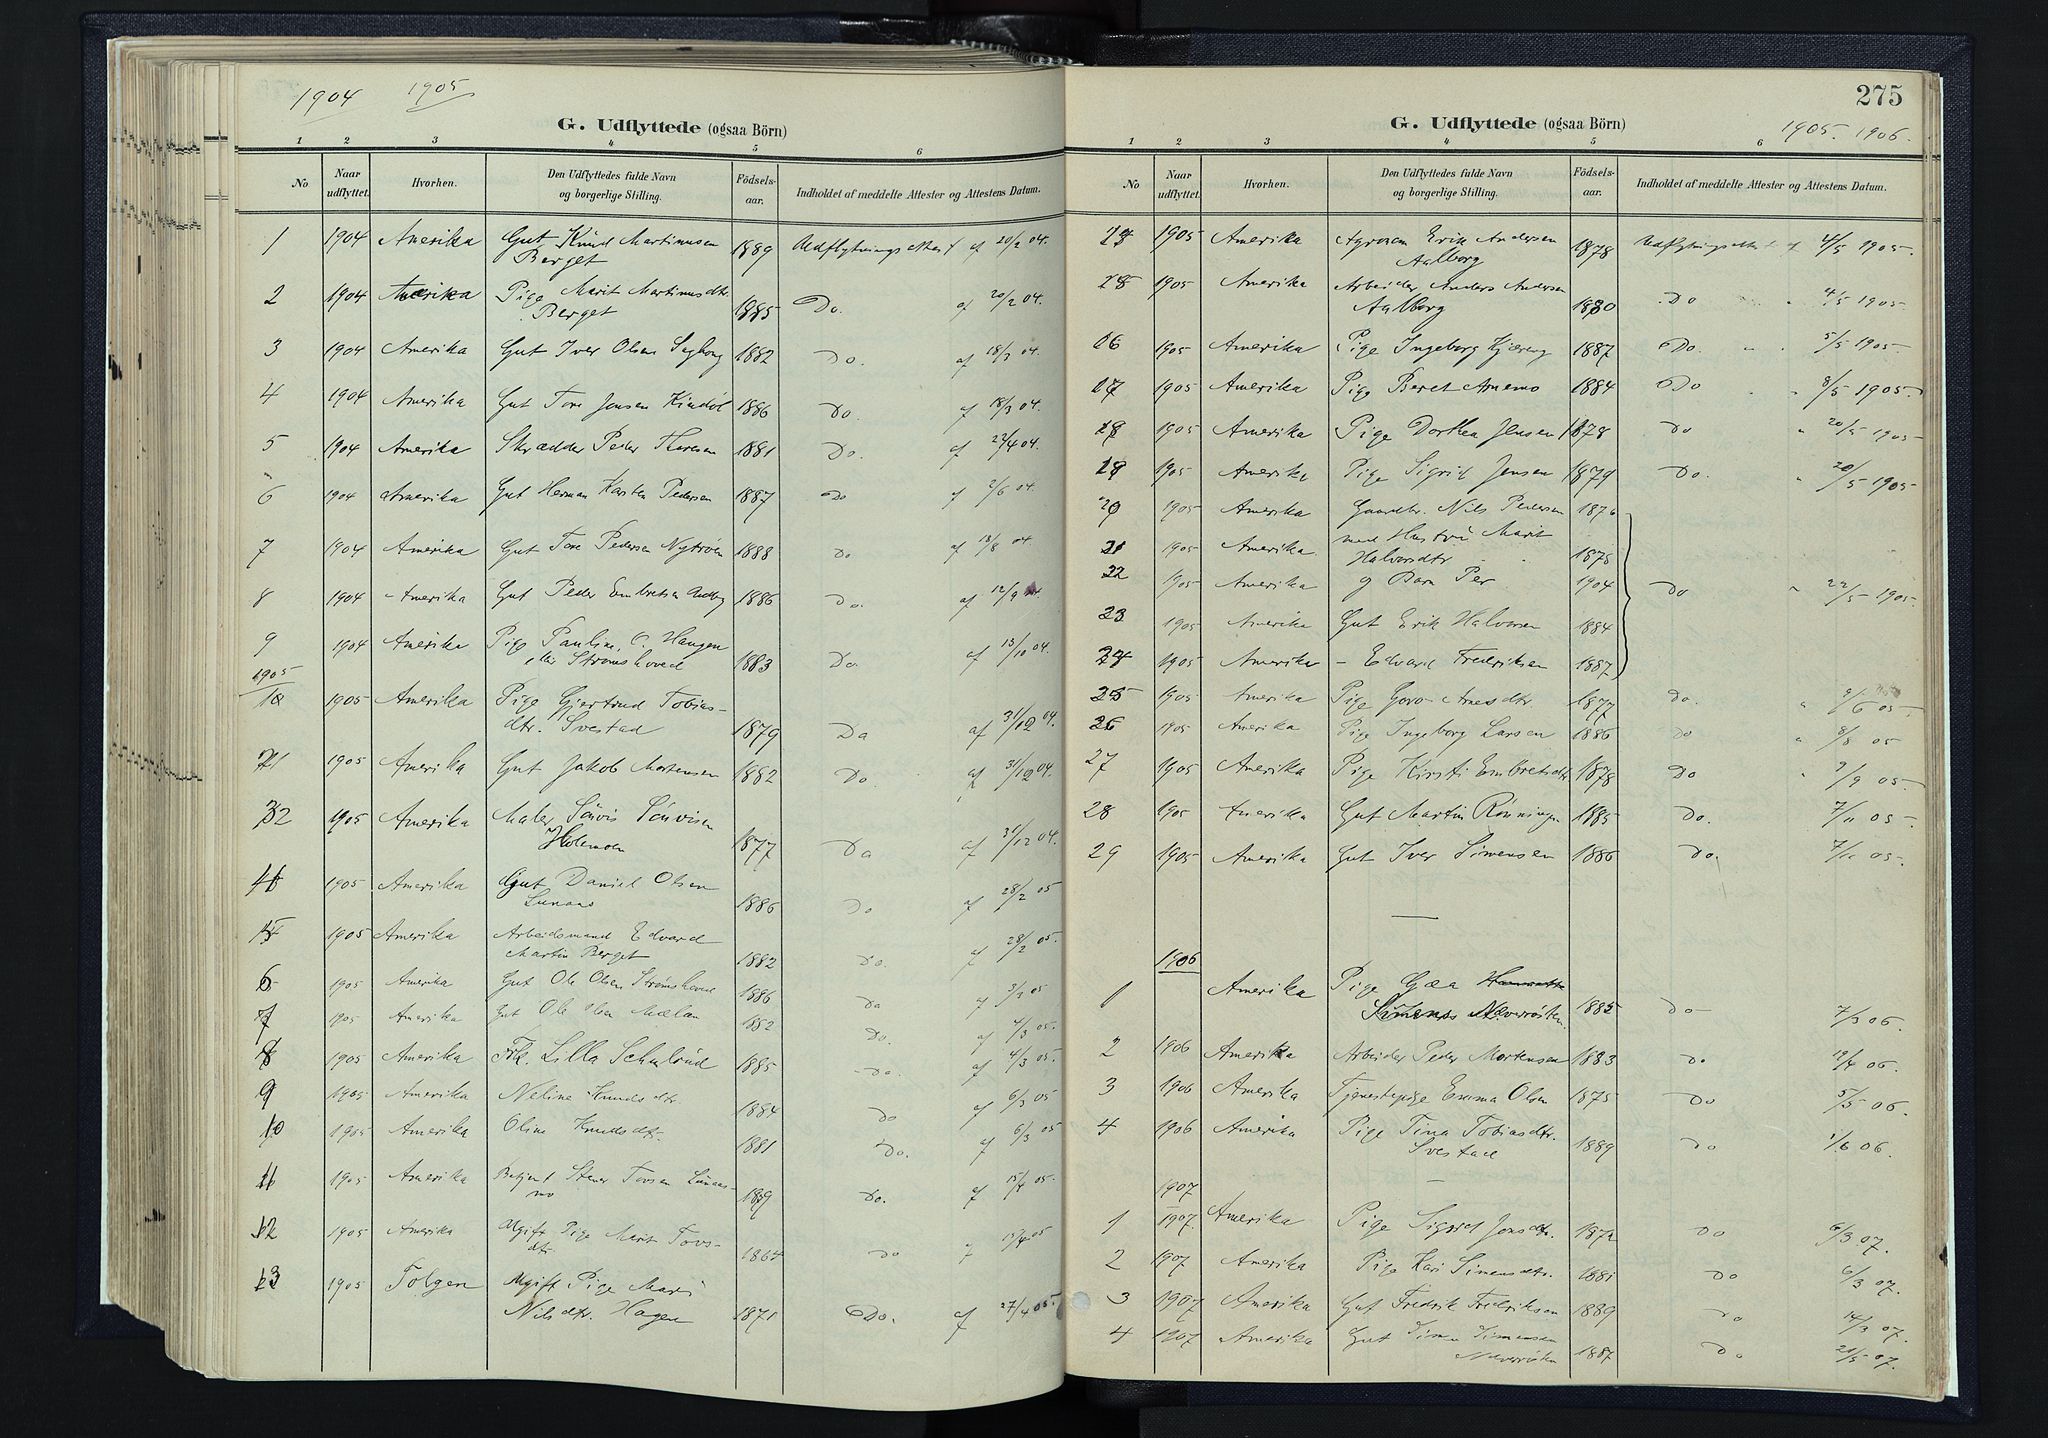 1904 1905
G. Udflyttede (ogsaa Börn)
1 2 3 4 5 6
No Naar udflyttet. Hvorhen. Den Udflyttedes fulde Navn og borgerlige Stilling. Födsels-aar. Indholdet af meddelte Attester og Attestens Datum.
1 1904 Amerika Gut Knud Martinusen 1889 Udflytningsattest af 20/2 04.
Berget
2 1904 Amerika Pige Marit Martinusdtr. 1885 Do. af 20/2 04.
Berget
3 1904 Amerika Gut Iver Olsen 1882 Do. af 18/3 04.
4 1904 Amerika Gut Tore Jonsen Kindöl 1886 Do. af 18/3 04.
5 1904 Amerika Skrædder Peder Theresen 1881 Do. af 22/4 04.
6 1904 Amerika Gut Herman Karsten Pedersen 1887 Do af 2/6 04.
7 1904 Amerika Gut Tore Pedersen Nytröen 1888 Do af 13/8 04.
8 1904 Amerika Gut Peder Embretsen 1886 Do. af 12/9 04.
9 1904 Amerika Pige Pauline C. Haugen 1883 Do. af 13/10 04.
eller Strömshoved
1905
1905 Amerika Pige Gjertrud Tobias- 1879 Do af 31/12 04.
dtr. Svestad
1905 Amerika Gut Jakob Mortensen 1882 Do. af 31/12 04.
1905 Amerika Maler Sövis Sövisen 1877 Do af 31/12 04.
Holemoen
1905 Amerika Gut Daniel Olsen 1886 Do af 28/2 05
Lunaas
1905 Amerika Arbeidsmand Edvard 1882 Do. af 28/2 05.
Martin Berget
6 1905 Amerika Gut Ole Olsen Strömshoved 1886 Do af 3/3 05
7 1905 Amerika Gut Ole Olsen Mælan 1882 Do. af 4/3 05.
8 1905 Amerika Frk. Lilla Schulrud 1885 Do. af 4/3 05.
9 1905 Amerika Neline Knudsdtr. 1884 Do af 6/3 05
10 1905 Amerika Oline Knudsdtr. 1881 Do. af 6/3 05
11 1905 Amerika Betjent Stener Tovsen Lunaas- 1889 Do. af 15/4 05.
mo
12 1905 Amerika Ugift Pige Marit Tovs- 1864 Do af 15/4 05
dtr.
13 1905 Tolgen Ugift Pige Mari
Nilsdtr. Hagen 1871 Do. af 27/4 05.
275
G. Udflyttede (ogsaa Börn) 1905. 1906.
1 2 3 4 5 6
No Naar udflyttet. Hvorhen. Den Udflyttedes fulde Navn og borgerlige Stilling. Födsels-aar. Indholdet af meddelte Attester og Attestens Datum.
1905 Amerika Agronom Erik Andersen 1878 Udflytningsattest af 4/5 1905
Aalborg
1905 Amerika Arbeider Anders Andersen
Aalborg 1880 Do " 4/5 1905
16 1905 Amerika Pige Ingeborg Kjæreng 1887 Do. " " 5/5 1905.
17 1905 Amerika Pige Beret Arnemo 1884 Do " " 8/5 1905.
18 1905 Amerika Pige Dorthea Jensen 1878 Do " 20/5 1905
19 1905 Amerika Pige Sigrid Jensen 1879 Do. " 20/5 1905
20 1905 Amerika Gaardbr. Nils Pedersen 1876
21 1905 Amerika med Hustru Marit
Halvorsdtr 1878
22 1905 Amerika og Barn Per 1904 Do " 22/5 1905.
23 1905 Amerika Gut Erik Halvorsen 1884
24 1905 Amerika - Edvard Fredriksen 1887
25 1905 Amerika Pige Goro Arnesdtr 1877 Do. " 9/6 05.
26 1905 Amerika Pige Ingeborg Larsen 1886 Do " 8/8 05
27 1905 Amerika Pige Kirsti Embretsdtr 1878 Do " 9/9 05.
28 1905 Amerika Gut Martin Rönningen 1885 Do. 7/11 05.
29 1905 Amerika Gut Iver Simensen 1886 Do. 7/11 05.
1906
1 Amerika Pige Gæa
Simensd. 1882 Do 7/3 06.
2 1906 Amerika Arbeider Peder Mortensen 1883 Do 19/4 06.
3 1906 Amerika Tjenestepige Emma Olsen 1875 Do 5/5 06.
4 1906 Amerika Pige Tina Tobiasdtr. 1889 Do 1/6 06.
Svestad
1907
1 1907. Amerika Pige Sigrid Jonsdtr. 1872 Do 6/3 07.
2 1907 Amerika Pige Kari Simensdtr. 1881 Do 6/3 07.
3 1907 Amerika Gut Fredrik Fredriksen 1889 Do 14/3 07.
4 1907 Amerika Gut Simen Simensen 1887 Do 21/5 07.